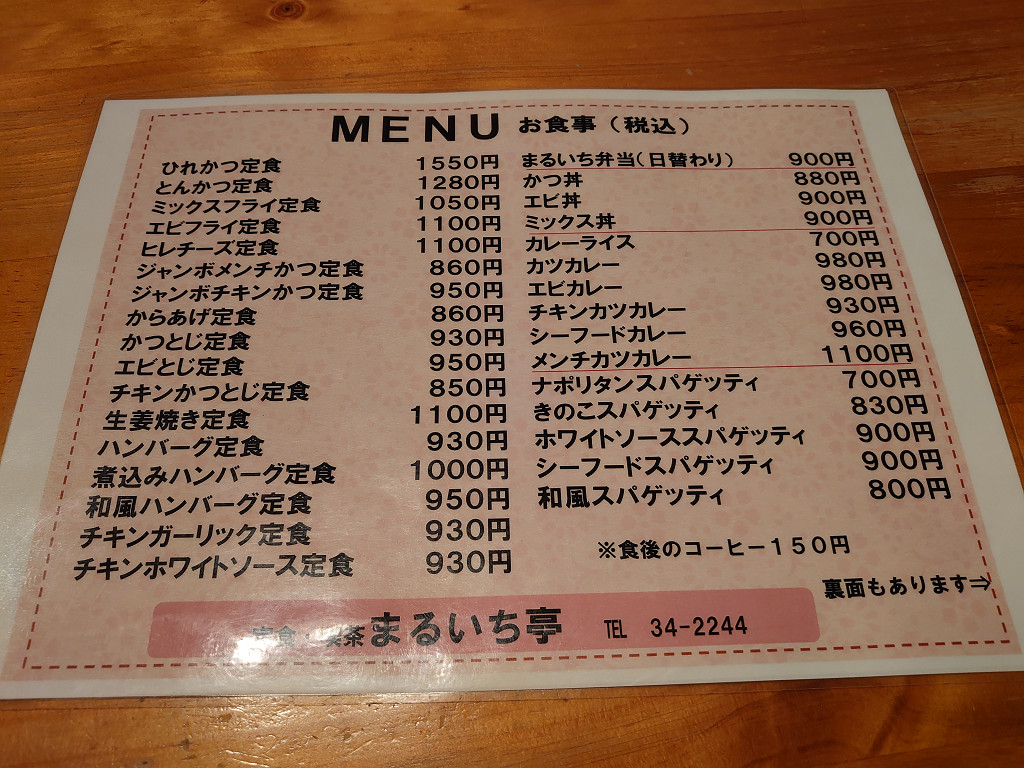 MENU お食事（税込）
ひれかつ定食 1550円
とんかつ定食 1280円
ミックスフライ定食 1050円
エビフライ定食 1100円
ヒレチーズ定食 1100円
ジャンボメンチかつ定食 860円
ジャンボチキンかつ定食 950円
からあげ定食 860円
かつとじ定食 930円
エビとじ定食 950円
チキンかつとじ定食 850円
生姜焼き定食 1100円
ハンバーグ定食 930円
煮込みハンバーグ定食 1000円
和風ハンバーグ定食 950円
チキンガーリック定食 930円
チキンホワイトソース定食 930円
まるいち弁当（日替わり） 900円
かつ丼 880円
エビ丼 900円
ミックス丼 900円
カレーライス 700円
カツカレー 980円
エビカレー 980円
チキンカツカレー 930円
シーフードカレー 960円
メンチカツカレー 1100円
ナポリタンスパゲッティ 700円
きのこスパゲッティ 830円
ホワイトソーススパゲッティ 900円
シーフードスパゲッティ 900円
和風スパゲッティ 800円
※食後のコーヒー１５０円
裏面もあります⇒
定食・喫茶 まるいち亭 TEL 34-2244